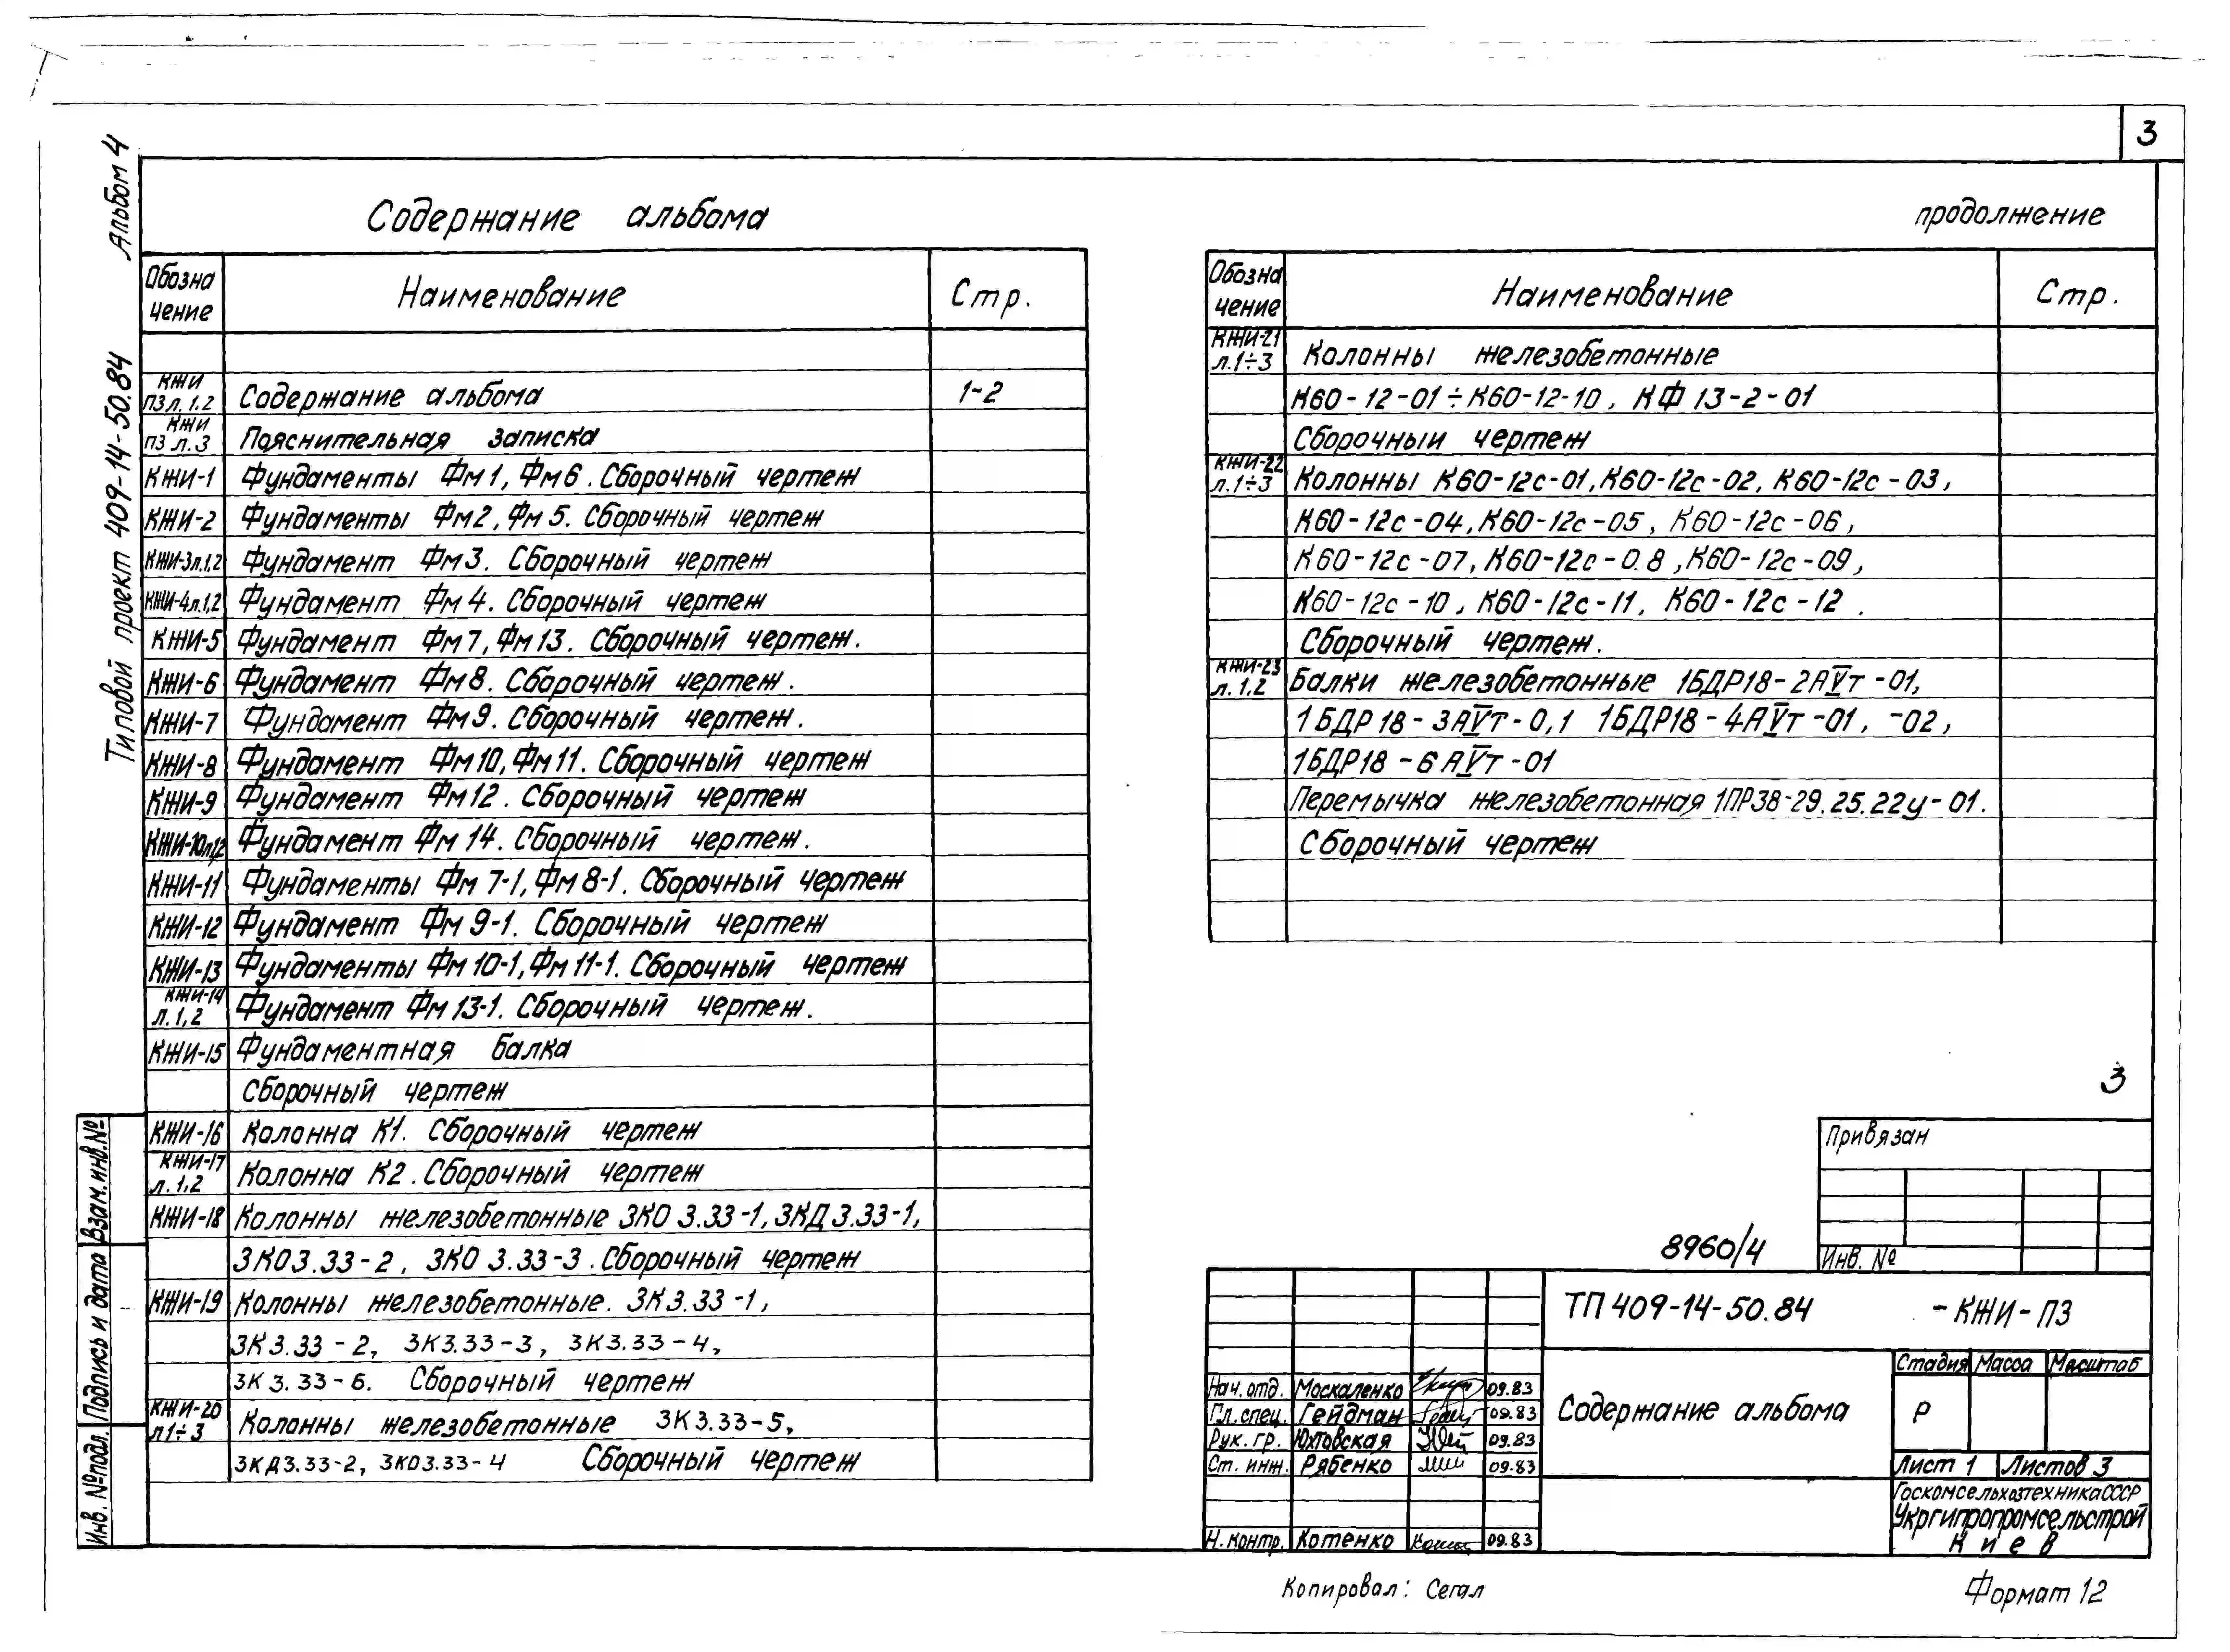 3
Альбом 4
Типовой проект 409-14-50.84
Содержание альбома
Обозна чение Наименование Стр.
КЖИ ПЗ л. 1,2 Содержание альбома 1-2
КЖИ ПЗ л.3 Пояснительная записка
КЖИ-1 Фундаменты Фм1, Фм6. Сборочный чертеж
КЖИ-2 Фундаменты Фм2, Фм5. Сборочный чертеж
КЖИ-3л.1,2 Фундамент Фм3. Сборочный чертеж
КЖИ-4л.1,2 Фундамент Фм4. Сборочный чертеж
КЖИ-5 Фундамент Фм7, Фм13. Сборочный чертеж.
КЖИ-6 Фундамент Фм8. Сборочный чертеж.
КЖИ-7 Фундамент Фм9. Сборочный чертеж.
КЖИ-8 Фундамент Фм10, Фм11. Сборочный чертеж
КЖИ-9 Фундамент Фм12. Сборочный чертеж
КЖИ-10л1,2 Фундамент Фм 14. Сборочный чертеж.
КЖИ-11 Фундаменты Фм 7-1, Фм 8-1. Сборочный чертеж
КЖИ-12 Фундамент Фм 9-1. Сборочный чертеж
КЖИ-13 Фундаменты Фм 10-1, Фм 11-1. Сборочный чертеж
КЖИ-14 л.1,2 Фундамент Фм 13-1. Сборочный чертеж.
КЖИ-15 Фундаментная балка
Сборочный чертеж
КЖИ-16 Колонна К1. Сборочный чертеж
КЖИ-17 л.1,2 Колонна К2. Сборочный чертеж
КЖИ-18 Колонны железобетонные 3КО 3.33-1, 3КД 3.33-1,
3КО3.33-2, 3КО 3.33-3. Сборочный чертеж
КЖИ-19 Колонны железобетонные. 3К3.33-1,
3К3.33-2, 3К3.33-3, 3К3.33-4,
3К3.33-6. Сборочный чертеж
КЖИ-20 л1÷3 Колонны железобетонные 3К3.33-5,
3КД3.33-2, 3КО3.33-4 Сборочный чертеж
продолжение
Обозна чение Наименование Стр.
КЖИ-21 л.1÷3 Колонны железобетонные
К60-12-01÷К60-12-10, КФ 13-2-01
Сборочный чертеж
КЖИ-22 л.1÷3 Колонны К60-12с-01, К60-12с-02, К60-12с-03,
К60-12с-04, К60-12с-05, К60-12с-06,
К60-12с-07, К60-12с-0.8, К60-12с-09,
К60-12с-10, К60-12с-11, К60-12с-12.
Сборочный чертеж.
КЖИ-23 л.1.2 Балки железобетонные 1БДР18-2АVт-01,
1БДР18-3АVт-0,1 1БДР18-4АVт-01, -02,
1БДР18-6АVт-01
Перемычка железобетонная 1ПР38-29.25.22у-01.
Сборочный чертеж
3
Привязан
Инв. №
8960/4
ТП 409-14-50.84 -КЖИ-ПЗ
Содержание альбома
Стадия Масса Масштаб
Р
Лист 1 Листов 3
Госкомсельхозтехника СССР
Укргипропромсельстрой
Киев
Нач. отд. Москаленко 09.83
Гл. спец. Гейдман 09.83
Рук. гр. Юхтовская 09.83
Ст. инж. Рябенко 09.83
Н. контр. Котенко 09.83
Взам. инв. №
Подпись и дата
Инв. № подл.
Копировал: Сегал
Формат 12